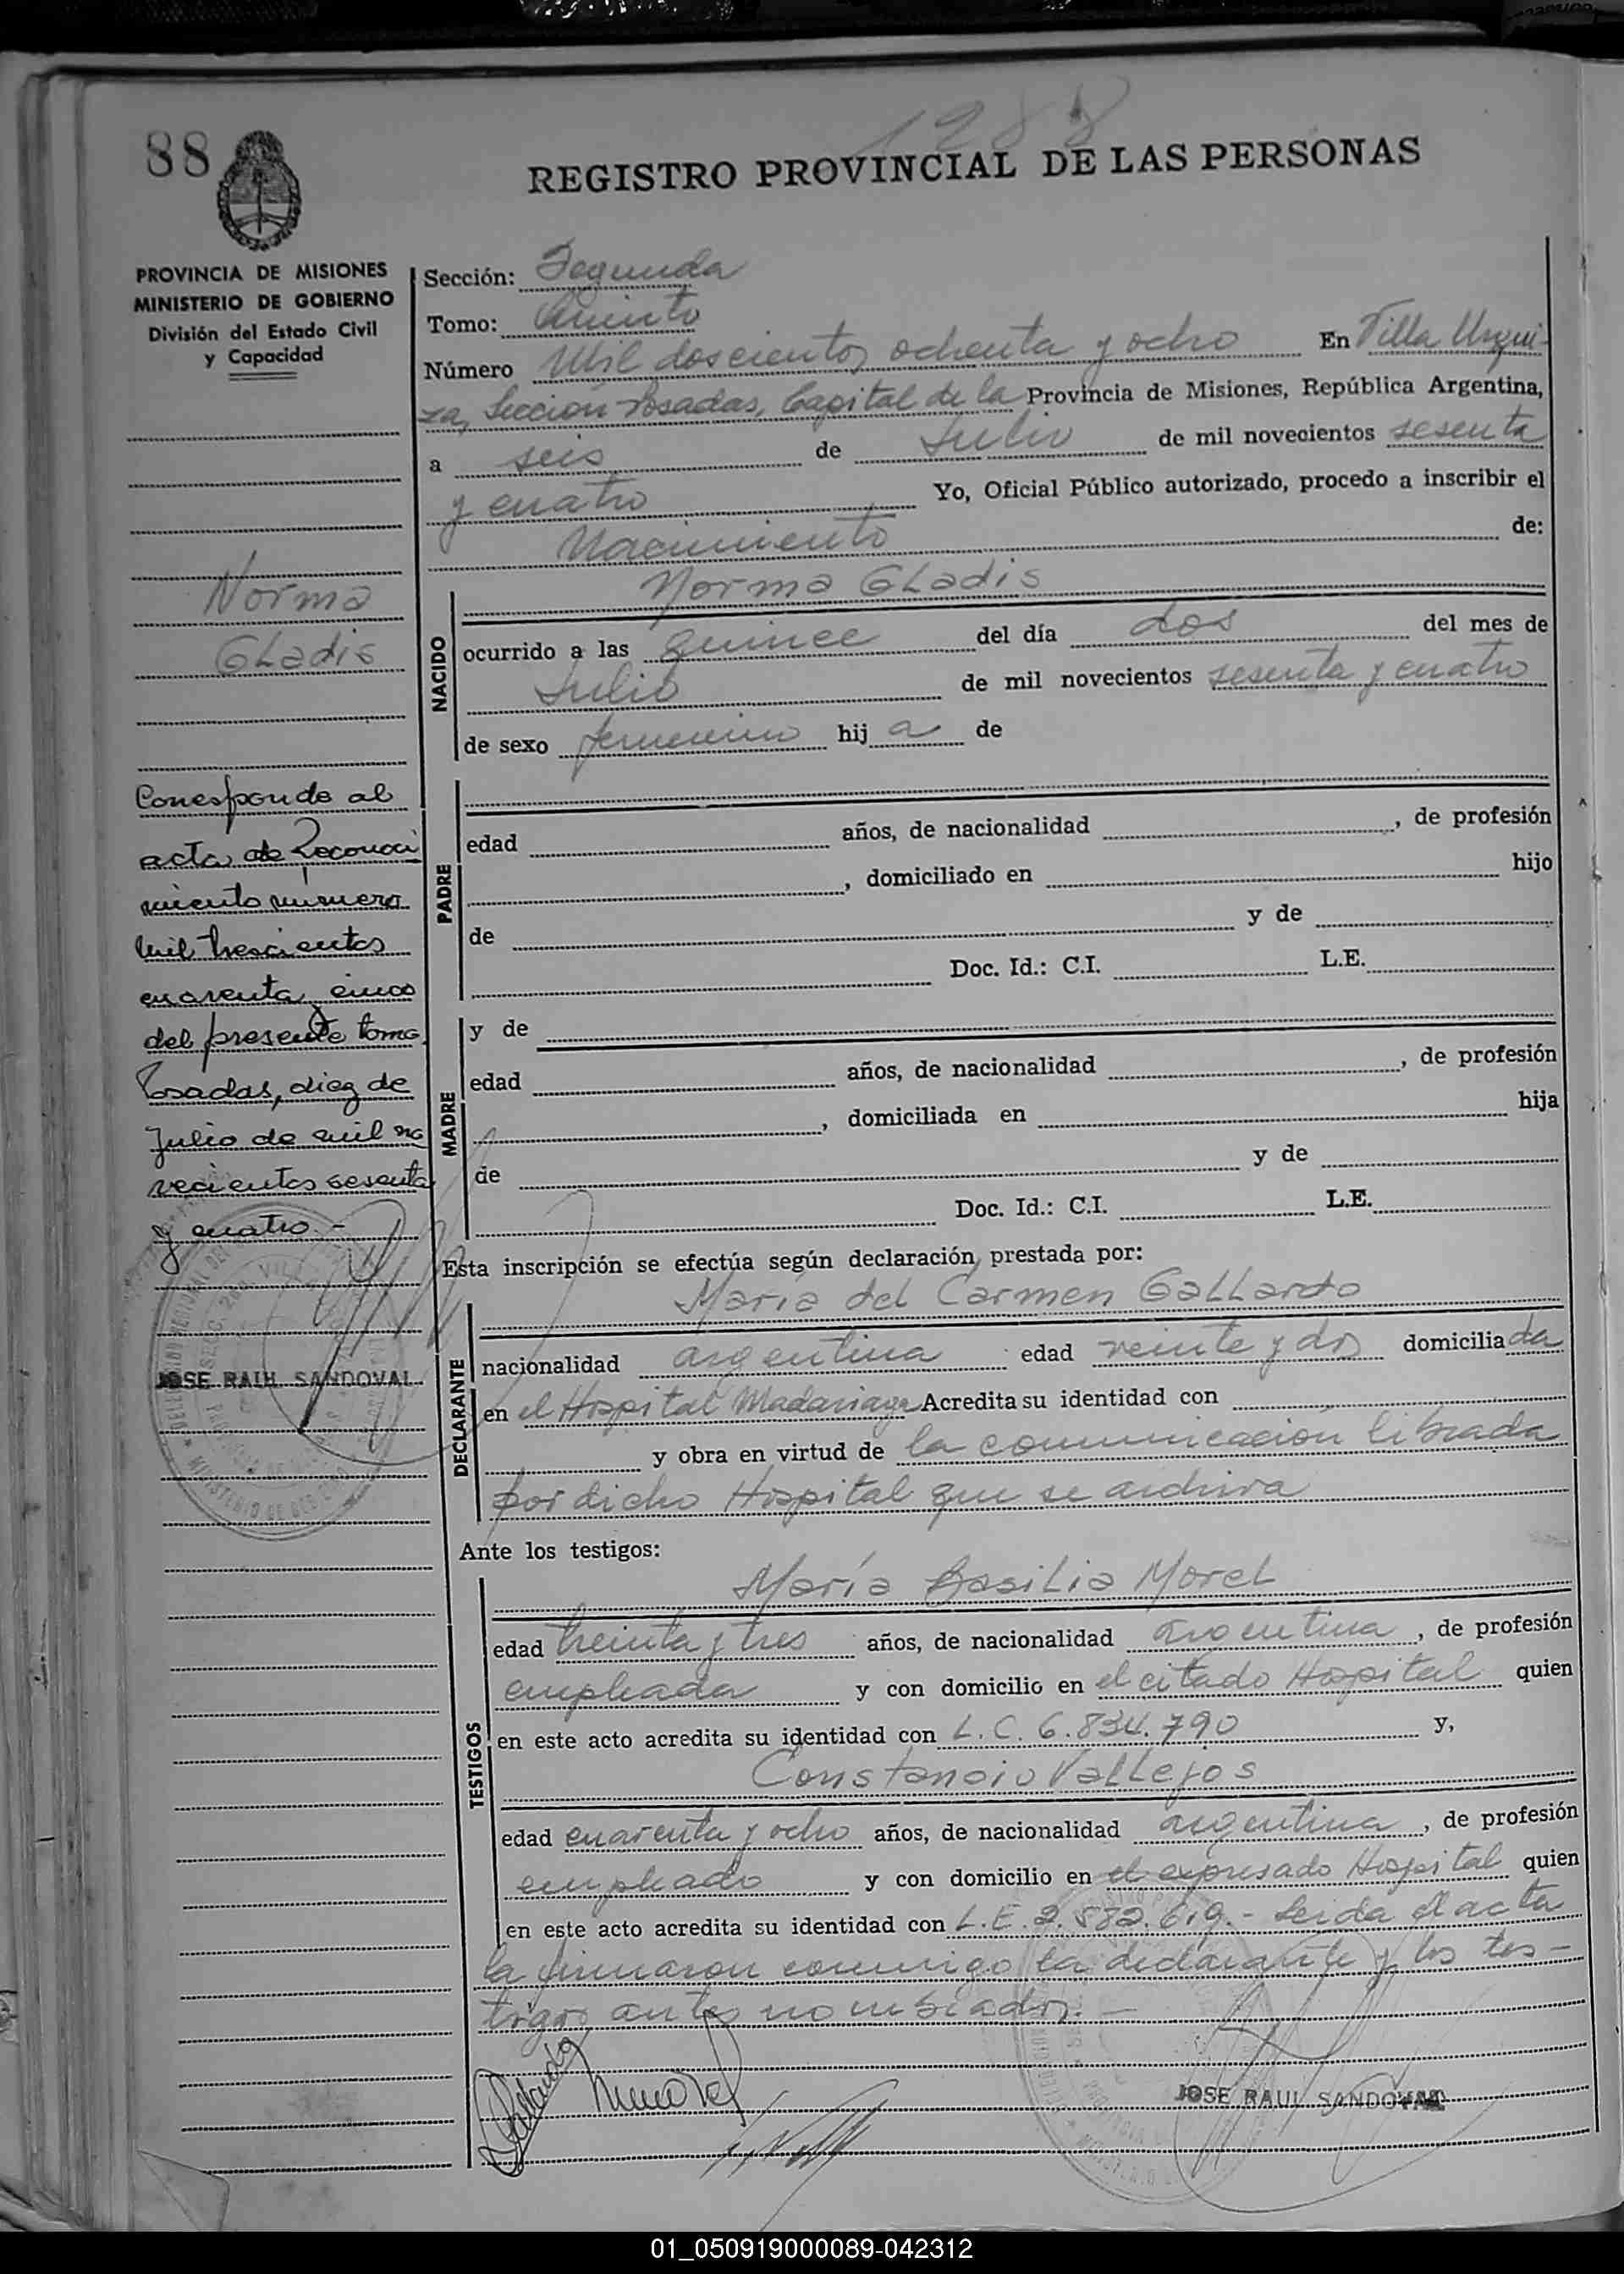 1288
88
REGISTRO PROVINCIAL DE LAS PERSONAS
PROVINCIA DE MISIONES
MINISTERIO DE GOBIERNO
División del Estado Civil
y Capacidad
Norma
Gladis
Corresponde al
acta de Reconoci
miento número
mil trescientos
cuarenta y cinco
del presente tomo.
Posadas, diez de
Julio de mil no
vecientos sesenta
y cuatro.-
JOSE RAUL SANDOVAL
Sección: Segunda
Tomo: Quinto
Número Mil doscientos ochenta y ocho En Villa Urqui-
za, Sección Posadas, Capital de la Provincia de Misiones, República Argentina,
a seis de Julio de mil novecientos sesenta
y cuatro Yo, Oficial Público autorizado, procedo a inscribir el
Nacimiento de:
NACIDO
Norma Gladis
ocurrido a las quince del día dos del mes de
Julio de mil novecientos sesenta y cuatro
de sexo femenino hij a de
PADRE
edad años, de nacionalidad , de profesión
, domiciliado en hijo
de y de
Doc. Id.: C.I. L.E.
MADRE
y de
edad años, de nacionalidad , de profesión
, domiciliada en hija
de y de
Doc. Id.: C.I. L.E.
Esta inscripción se efectúa según declaración prestada por:
DECLARANTE
María del Carmen Gallardo
nacionalidad argentina edad veinte y dos domicilia da
en el Hospital Madariaga Acredita su identidad con
y obra en virtud de la comunicación librada
por dicho Hospital que se archiva
Ante los testigos:
TESTIGOS
María Basilia Morel
edad treinta y tres años, de nacionalidad argentina, de profesión
empleada y con domicilio en el citado Hospital quien
en este acto acredita su identidad con L.C. 6.834.790 y,
Constancio Vallejos
edad cuarenta y ocho años, de nacionalidad argentina, de profesión
empleado y con domicilio en el expresado Hospital quien
en este acto acredita su identidad con L.E. 2.582.619.- Leída el acta
la firmaron conmigo la declarante y los tes-
tigos antes nombrados.-
JOSE RAUL SANDOVAL
01_050919000089-042312